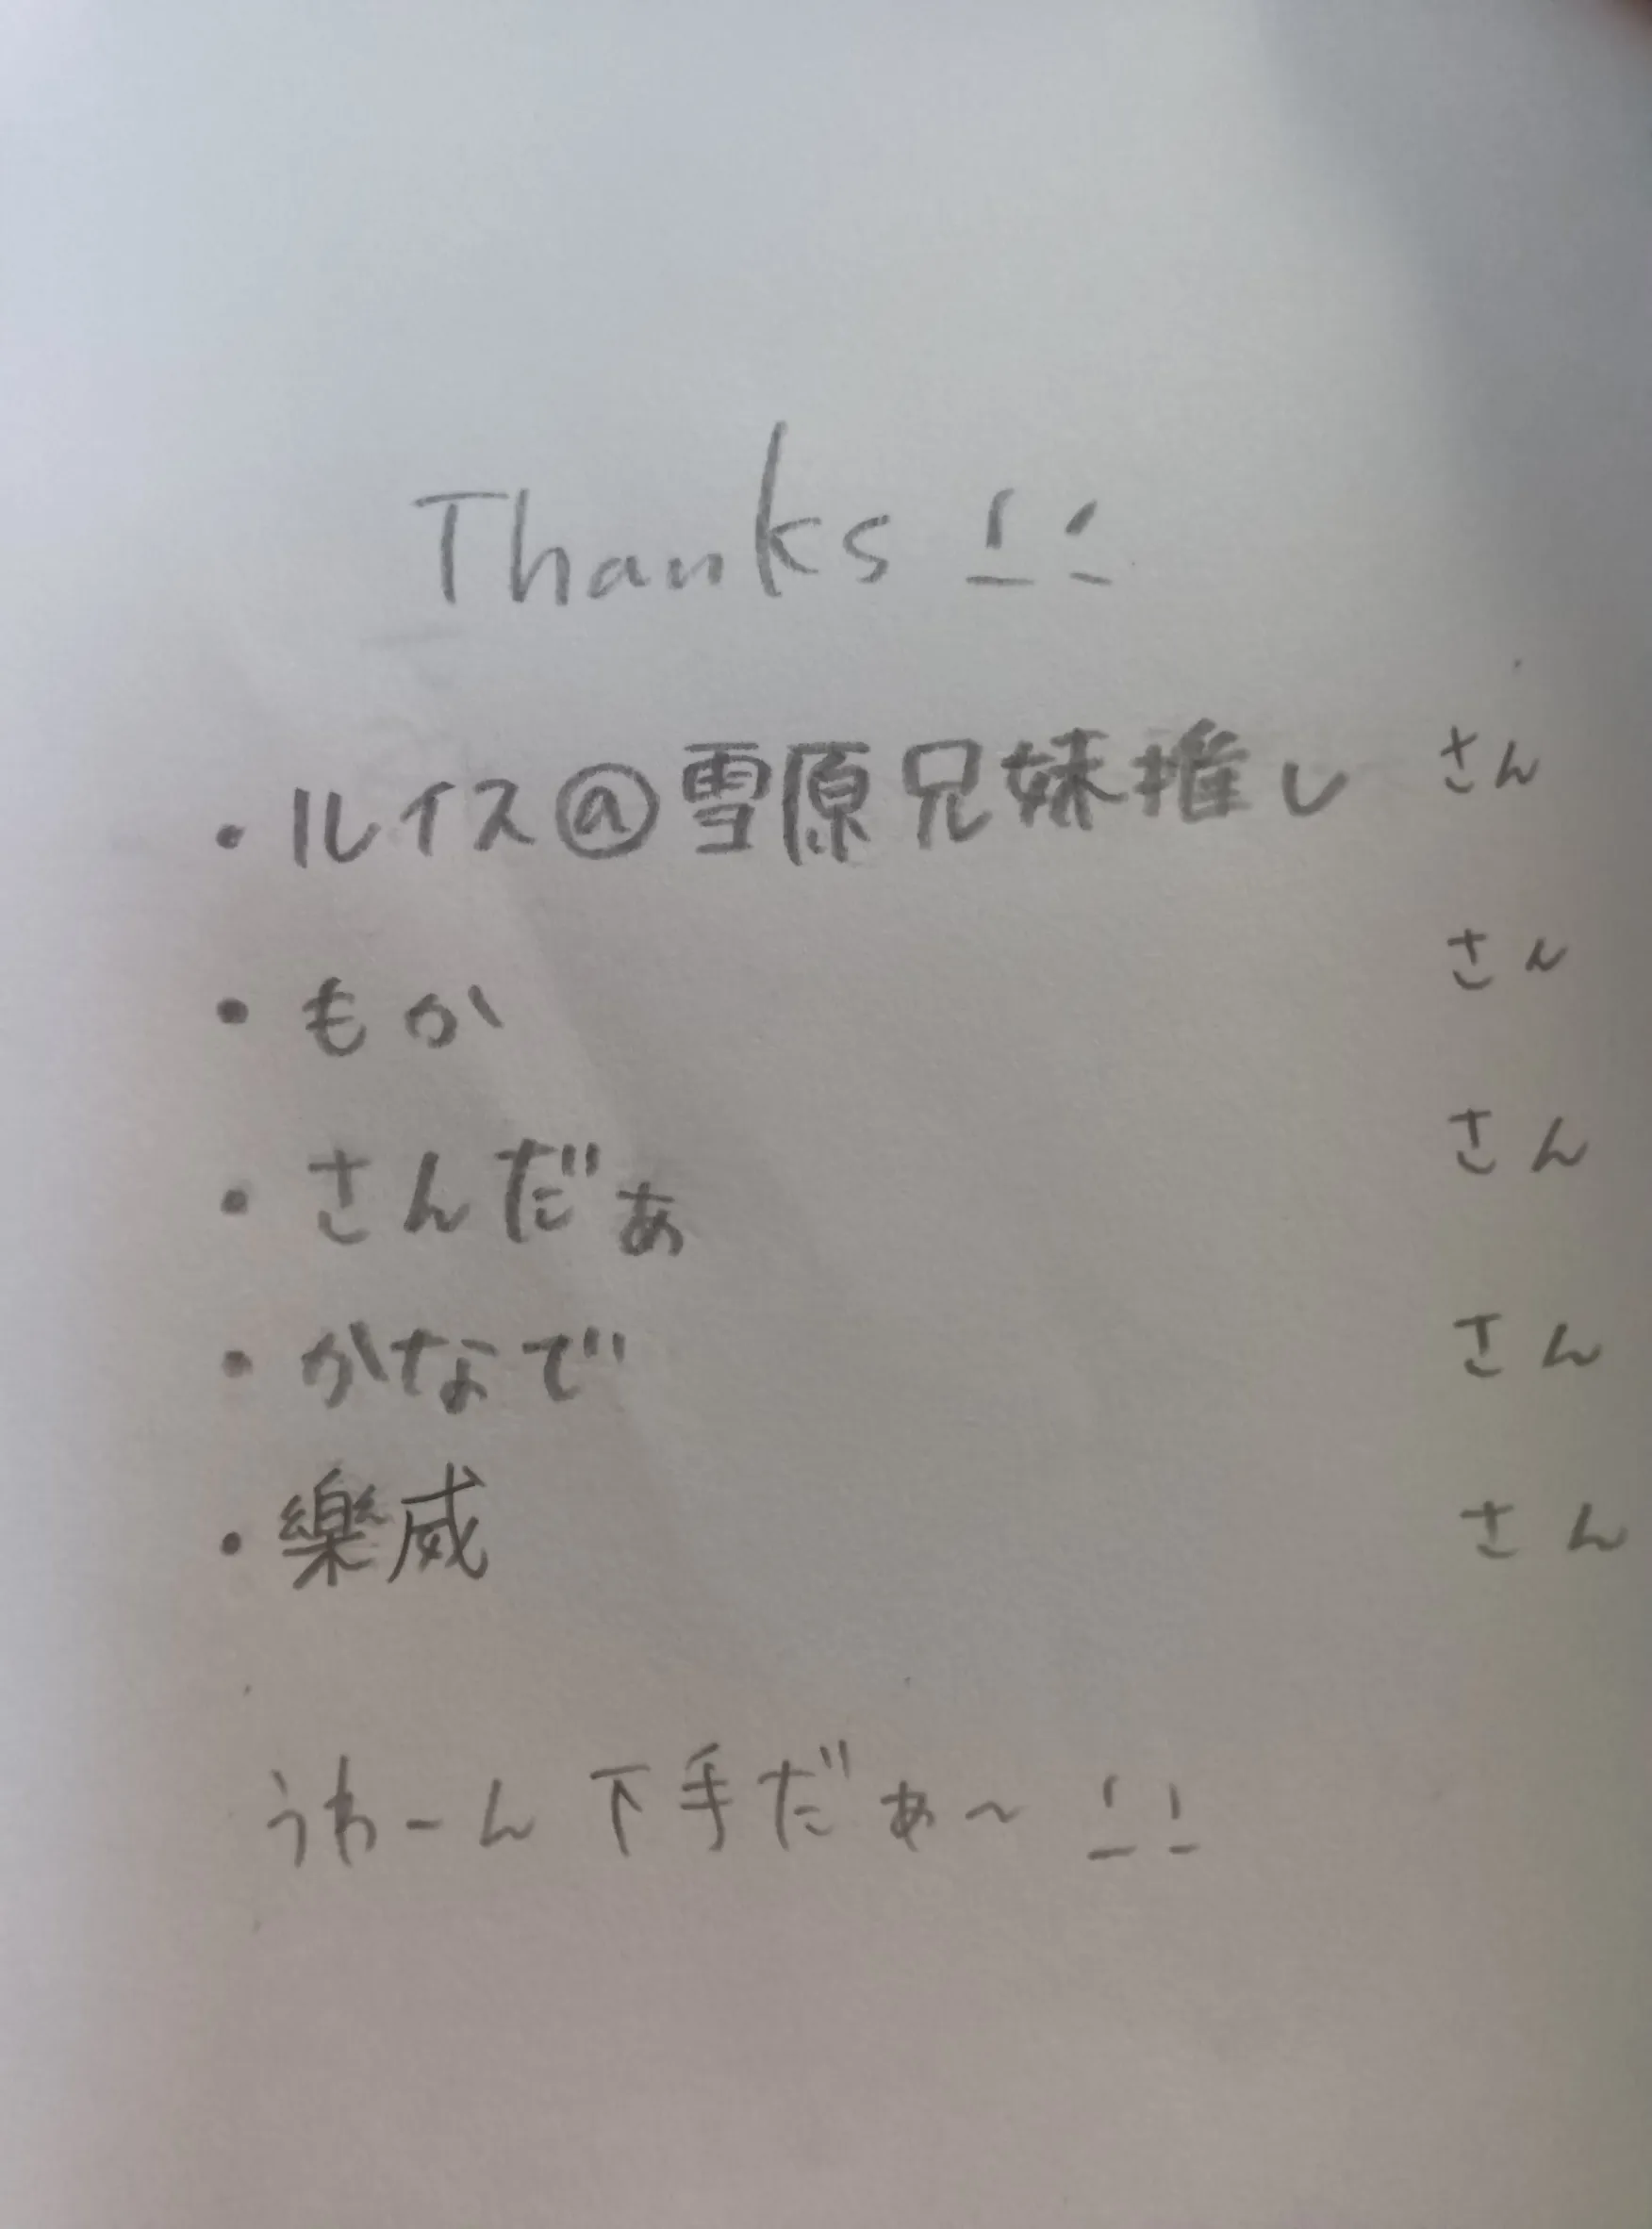 Thanks !!
・ルイス@雪原兄妹推し さん
・もか さん
・さんだぁ さん
・かなで さん
・樂威 さん
うわーん下手だぁ〜!!